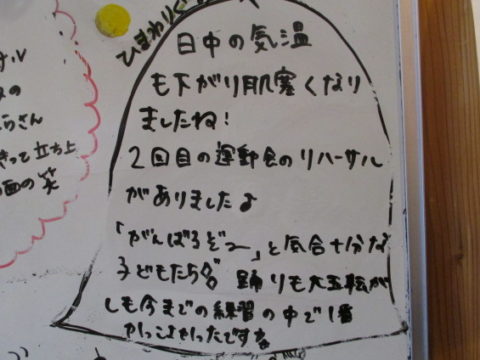 ひまわりぐ
日中の気温
も下がり肌寒くなり
ましたね!
2回目の運動会のリハーサル
がありましたよ
「がんばるぞー」と気合十分な
子どもたち 踊りも大玉転が
しも今までの練習の中で1番
かっこよかったです
さん
って立ち上
面の笑